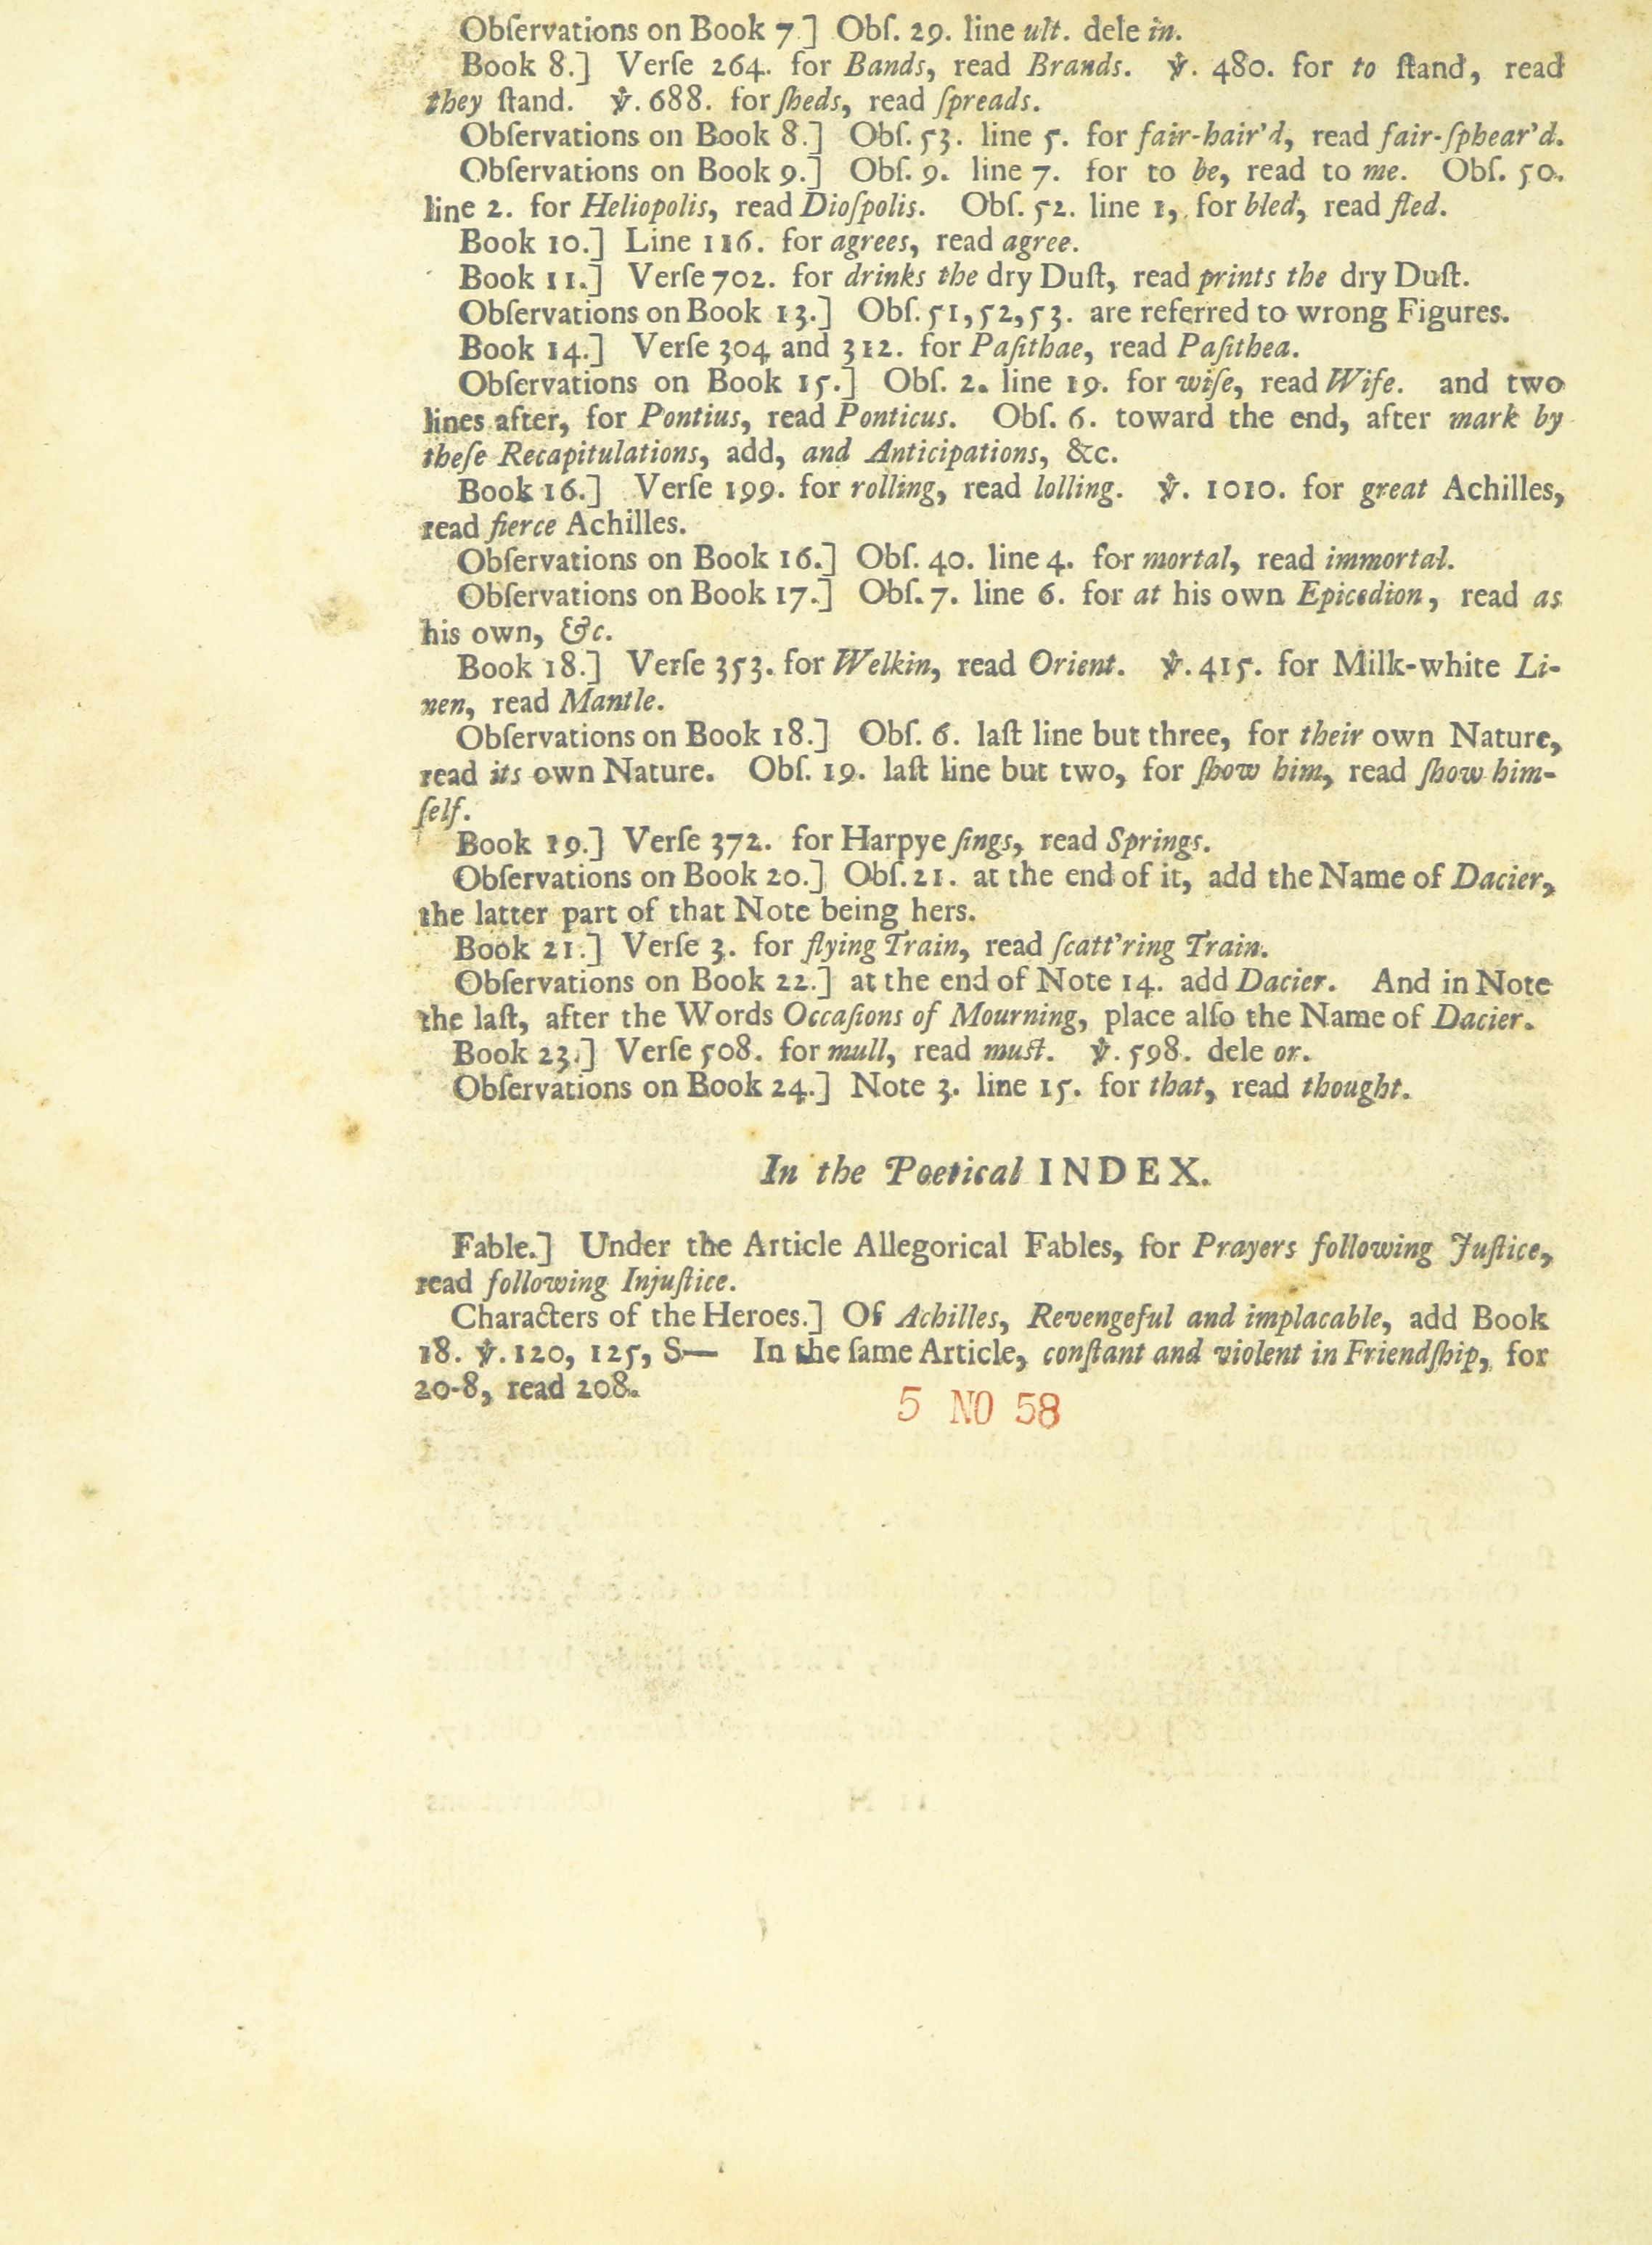 Obſervations on Book 7.] Obſ. 29. line ult. dele in.
Book 8.] Verſe 264. for Bands, read Brands. ℣. 480. for to ſtand, read
they ſtand. ℣. 688. for ſheds, read ſpreads.
Obſervations on Book 8.] Obſ. 53. line 5. for fair-hair'd, read fair-ſphear'd.
Obſervations on Book 9.] Obſ. 9. line 7. for to be, read to me. Obſ. 50.
line 2. for Heliopolis, read Dioſpolis. Obſ. 52. line 1, for bled, read fled.
Book 10.] Line 116. for agrees, read agree.
Book 11.] Verſe 702. for drinks the dry Duſt, read prints the dry Duſt.
Obſervations on Book 13.] Obſ. 51, 52, 53. are referred to wrong Figures.
Book 14.] Verſe 304 and 312. for Paſithae, read Paſithea.
Obſervations on Book 15.] Obſ. 2. line 19. for wiſe, read Wife. and two
lines after, for Pontius, read Ponticus. Obſ. 6. toward the end, after mark by
theſe Recapitulations, add, and Anticipations, &c.
Book 16.] Verſe 199. for rolling, read lolling. ℣. 1010. for great Achilles,
read fierce Achilles.
Obſervations on Book 16.] Obſ. 40. line 4. for mortal, read immortal.
Obſervations on Book 17.] Obſ. 7. line 6. for at his own Epicedion, read as
his own, &c.
Book 18.] Verſe 353. for Welkin, read Orient. ℣. 415. for Milk-white Li-
nen, read Mantle.
Obſervations on Book 18.] Obſ. 6. laſt line but three, for their own Nature,
read its own Nature. Obſ. 19. laſt line but two, for ſhow him, read ſhow him-
ſelf.
Book 19.] Verſe 372. for Harpye ſings, read Springs.
Obſervations on Book 20.] Obſ. 21. at the end of it, add the Name of Dacier,
the latter part of that Note being hers.
Book 21.] Verſe 3. for flying Train, read ſcatt'ring Train.
Obſervations on Book 22.] at the end of Note 14. add Dacier. And in Note
the laſt, after the Words Occaſions of Mourning, place alſo the Name of Dacier.
Book 23.] Verſe 508. for mull, read muſt. ℣. 598. dele or.
Obſervations on Book 24.] Note 3. line 15. for that, read thought.
In the Poetical INDEX.
Fable.] Under the Article Allegorical Fables, for Prayers following Juſtice,
read following Injuſtice.
Characters of the Heroes.] Of Achilles, Revengeful and implacable, add Book
18. ℣. 120, 125, S— In the ſame Article, conſtant and violent in Friendſhip, for
20-8, read 208.
5 NO 58